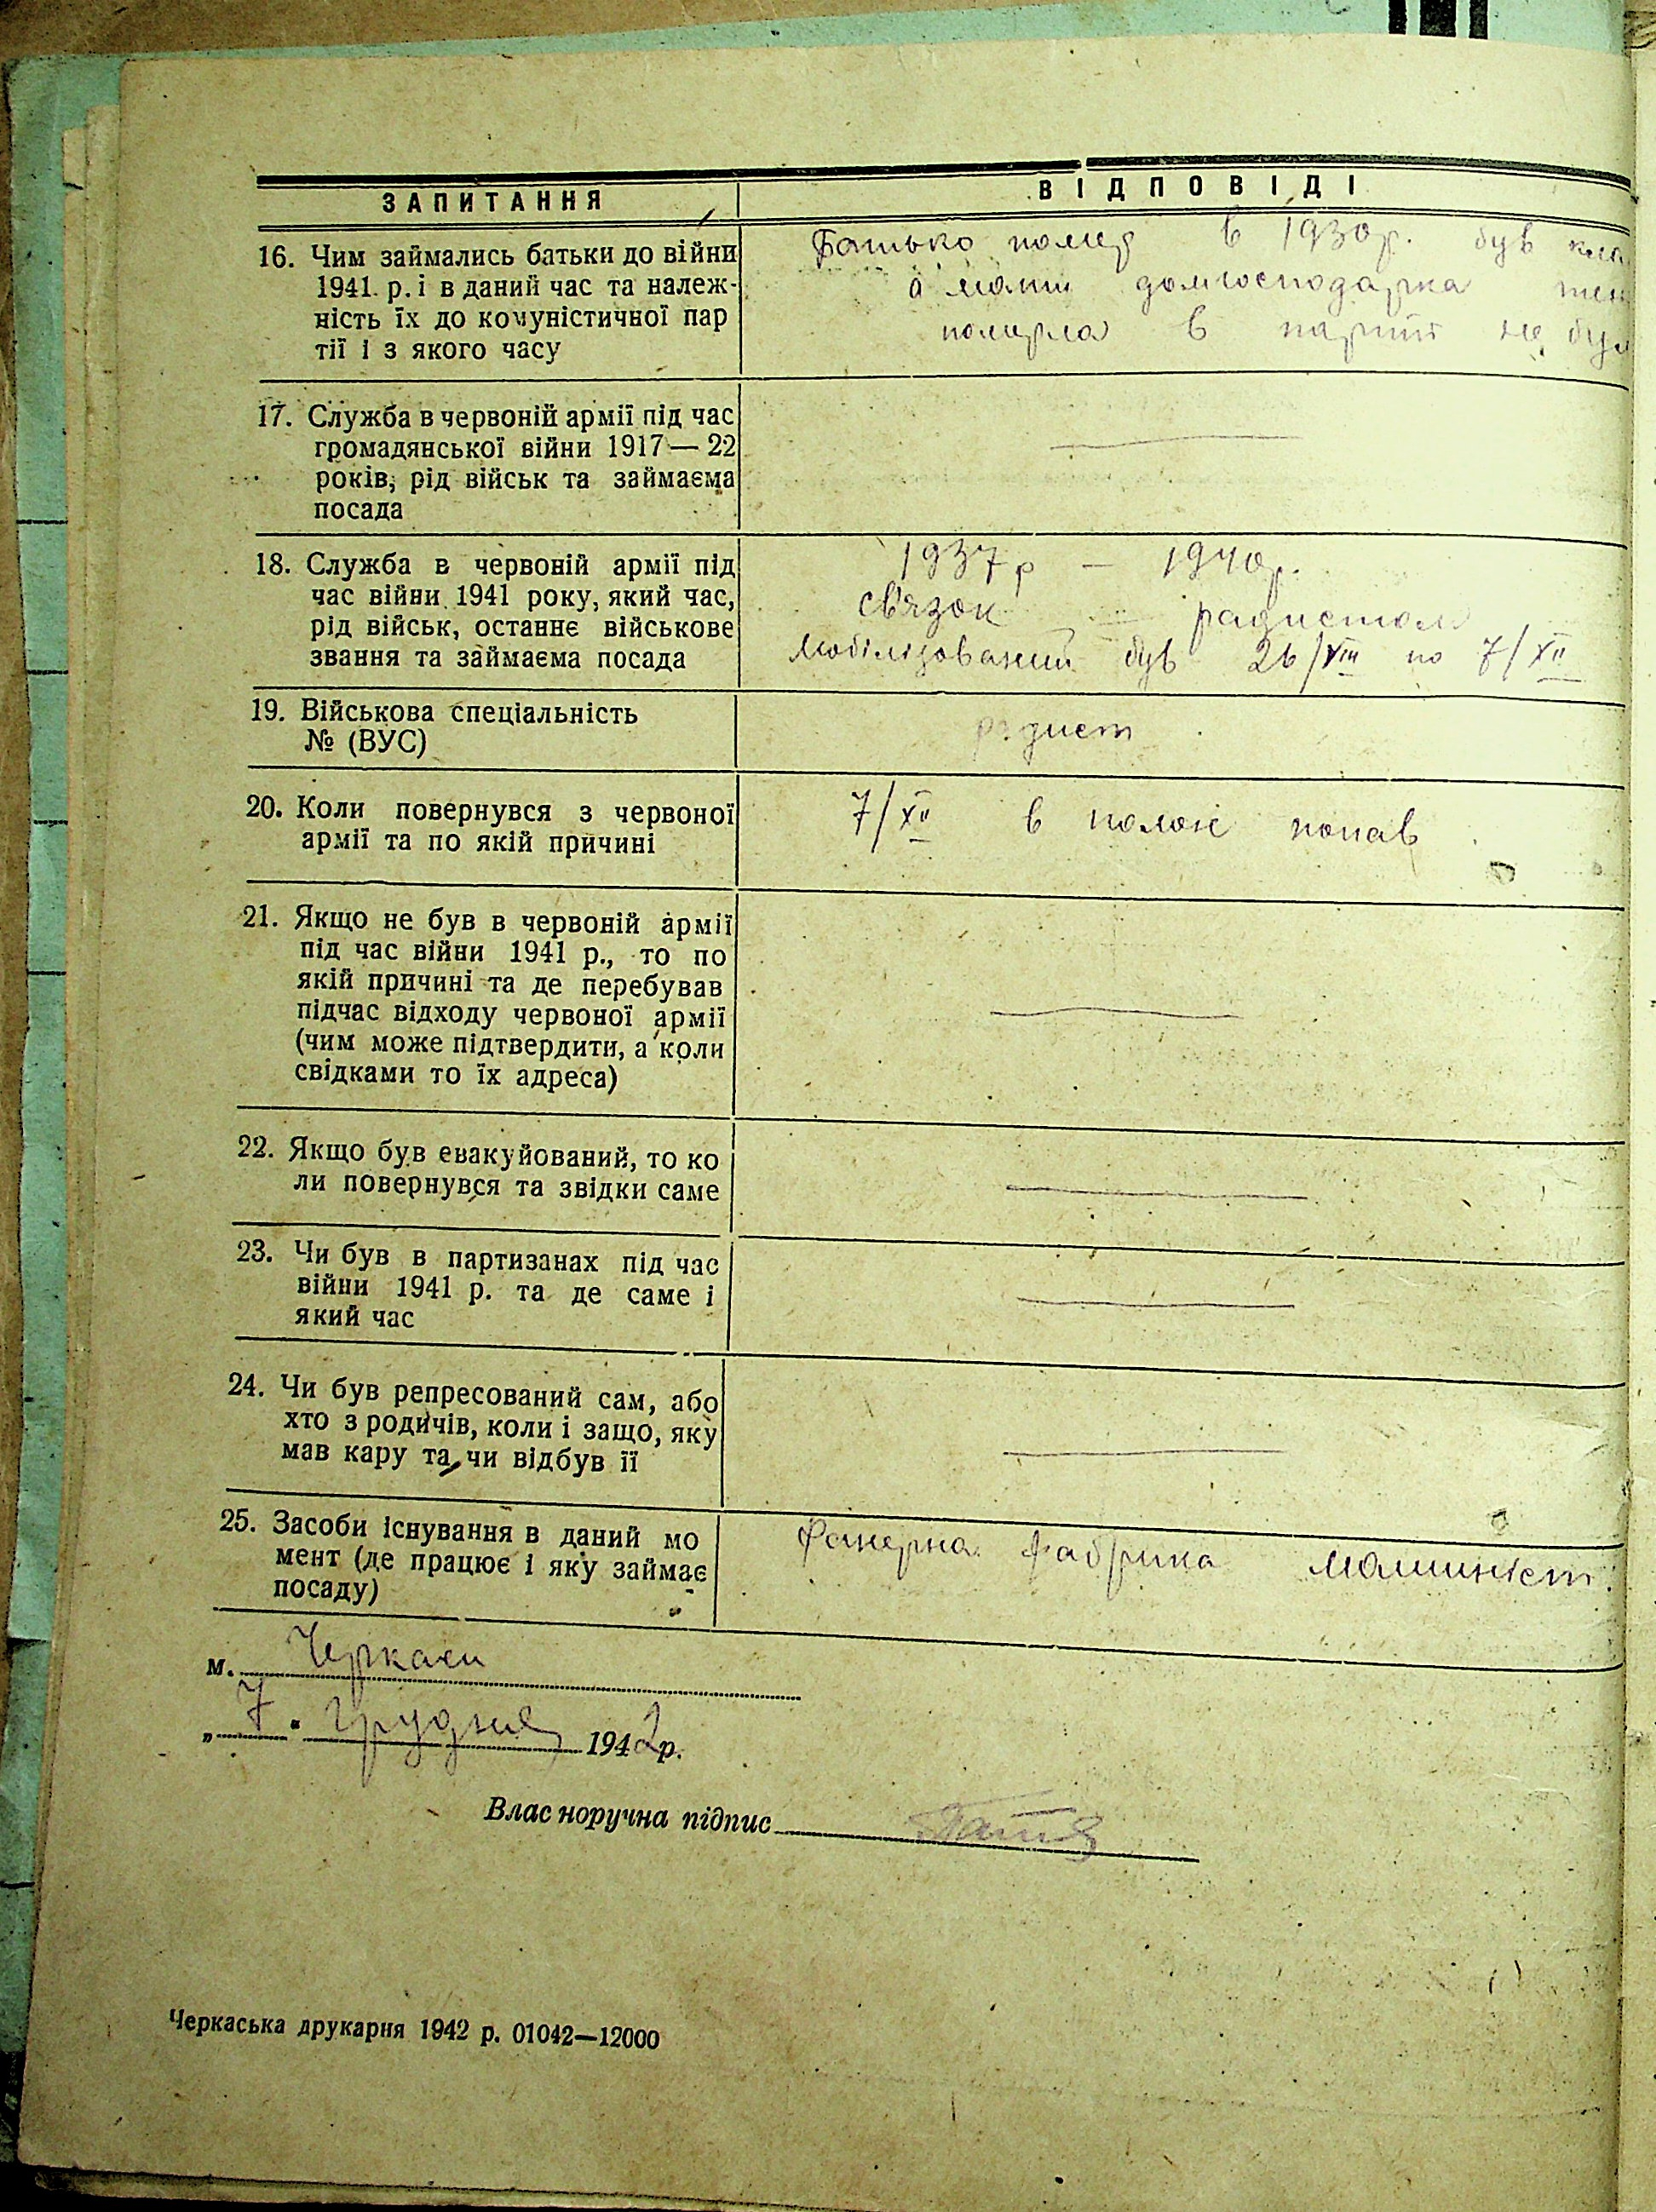 ЗАПИТАННЯ
ВІДПОВІДІ
16. Чим займались батьки до війни
1941. р. і в даний час та належ-
ність їх до комуністичної пар
тії і з якого часу
Батько помер в 1930р. був
а мати домгосподарка
померла в партії не бул
17. Служба в червоній армії під час
громадянської війни 1917—22
років, рід військ та займаєма
посада
18. Служба в червоній армії під
час війни 1941 року, який час,
рід військ, останнє військове
звання та займаєма посада
1937р – 1940р.
св'язок радистом
мобілізований був 26/VIII по 7/XII
19. Військова спеціальність
№ (ВУС)
радист
20. Коли повернувся з червоної
армії та по якій причині
7/XII в полон попав
21. Якщо не був в червоній армії
під час війни 1941 р., то по
якій причині та де перебував
підчас відходу червоної армії
(чим може підтвердити, а коли
свідками то їх адреса)
22. Якщо був евакуйований, то ко
ли повернувся та звідки саме
23. Чи був в партизанах під час
війни 1941 р. та де саме і
який час
24. Чи був репресований сам, або
хто з родичів, коли і защо, яку
мав кару та, чи відбув її
25. Засоби існування в даний мо
мент (де працює і яку займає
посаду)
Фанерна фабрика машиніст.
м. Черкаси
„7" грудня 1942р.
Власноручна підпис
Черкаська друкарня 1942 р. 01042—12000